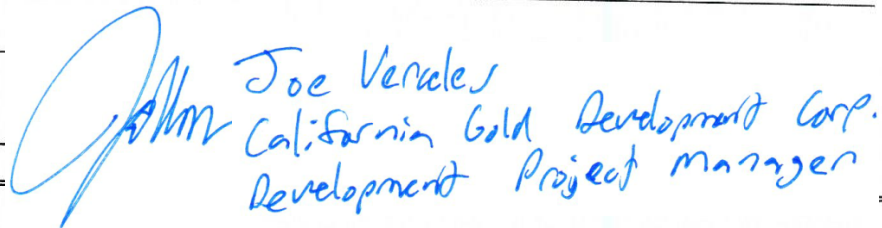 Joe Verceles
California Gold Development Corp.
Development Project Manager